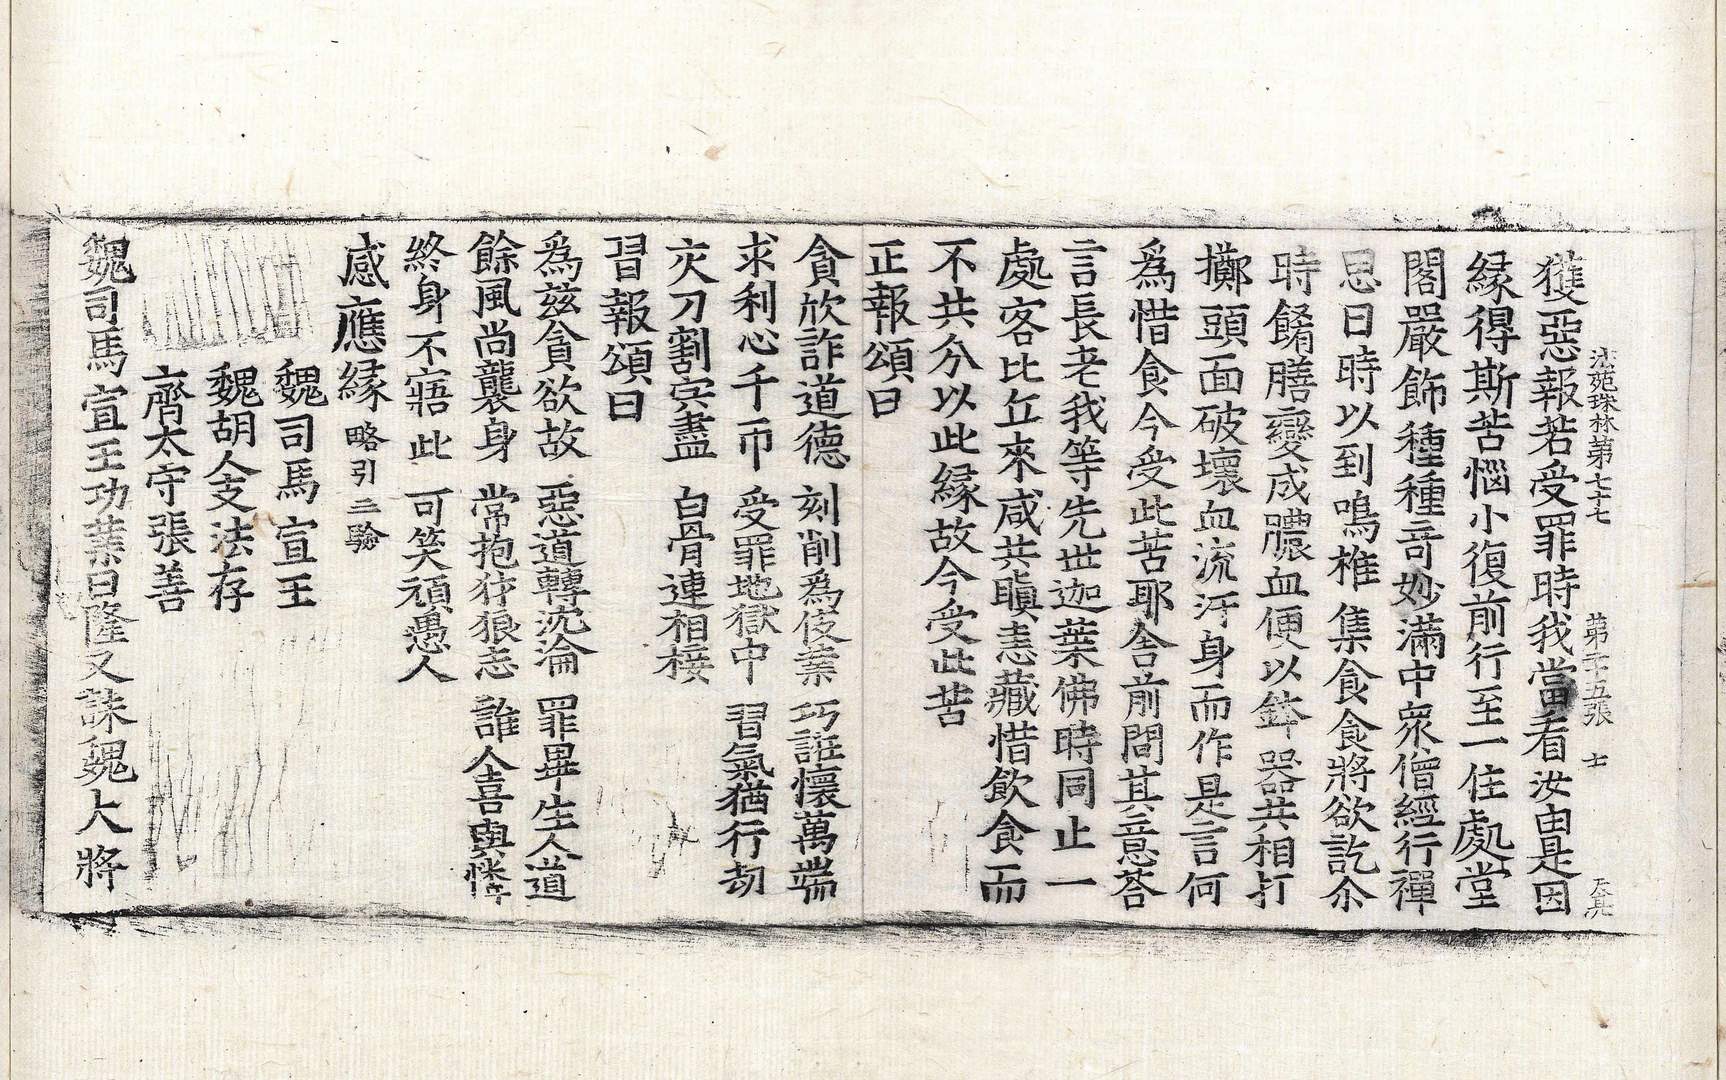 法苑珠林第七十七　第二十五張　士
獲惡報若受罪時我當看汝由是因
縁得斯苦惱小復前行至一住處堂
閣嚴飾種種竒妙滿中衆僧經行禪
思日時以到鳴椎集食食將欲訖余
時餚膳變成膿血便以鉢器共相打
擲頭面破壞血流汙身而作是言何
為惜食今受此苦耶舍前問其意荅
言長老我等先世迦葉佛時同止一
處客比丘來咸共瞋恚藏惜飲食而
不共分以此縁故今受此苦
正報頌曰
貪欣詐道德　刻削為伎業　巧誑懷萬端
求利心千帀　受罪地獄中　習氣猶行劫
灾刀割宍盡　白骨連相接
習報頌曰
為茲貪欲故　惡道轉沈淪　罪畢生人道
餘風尚襲身　常抱犲狼志　誰人喜與憐
終身不寤此　可笑頑愚人
感應縁略引三驗
魏司馬宣王
魏胡人支法存
齊太守張善
魏司馬宣王功業日隆又誅魏大將